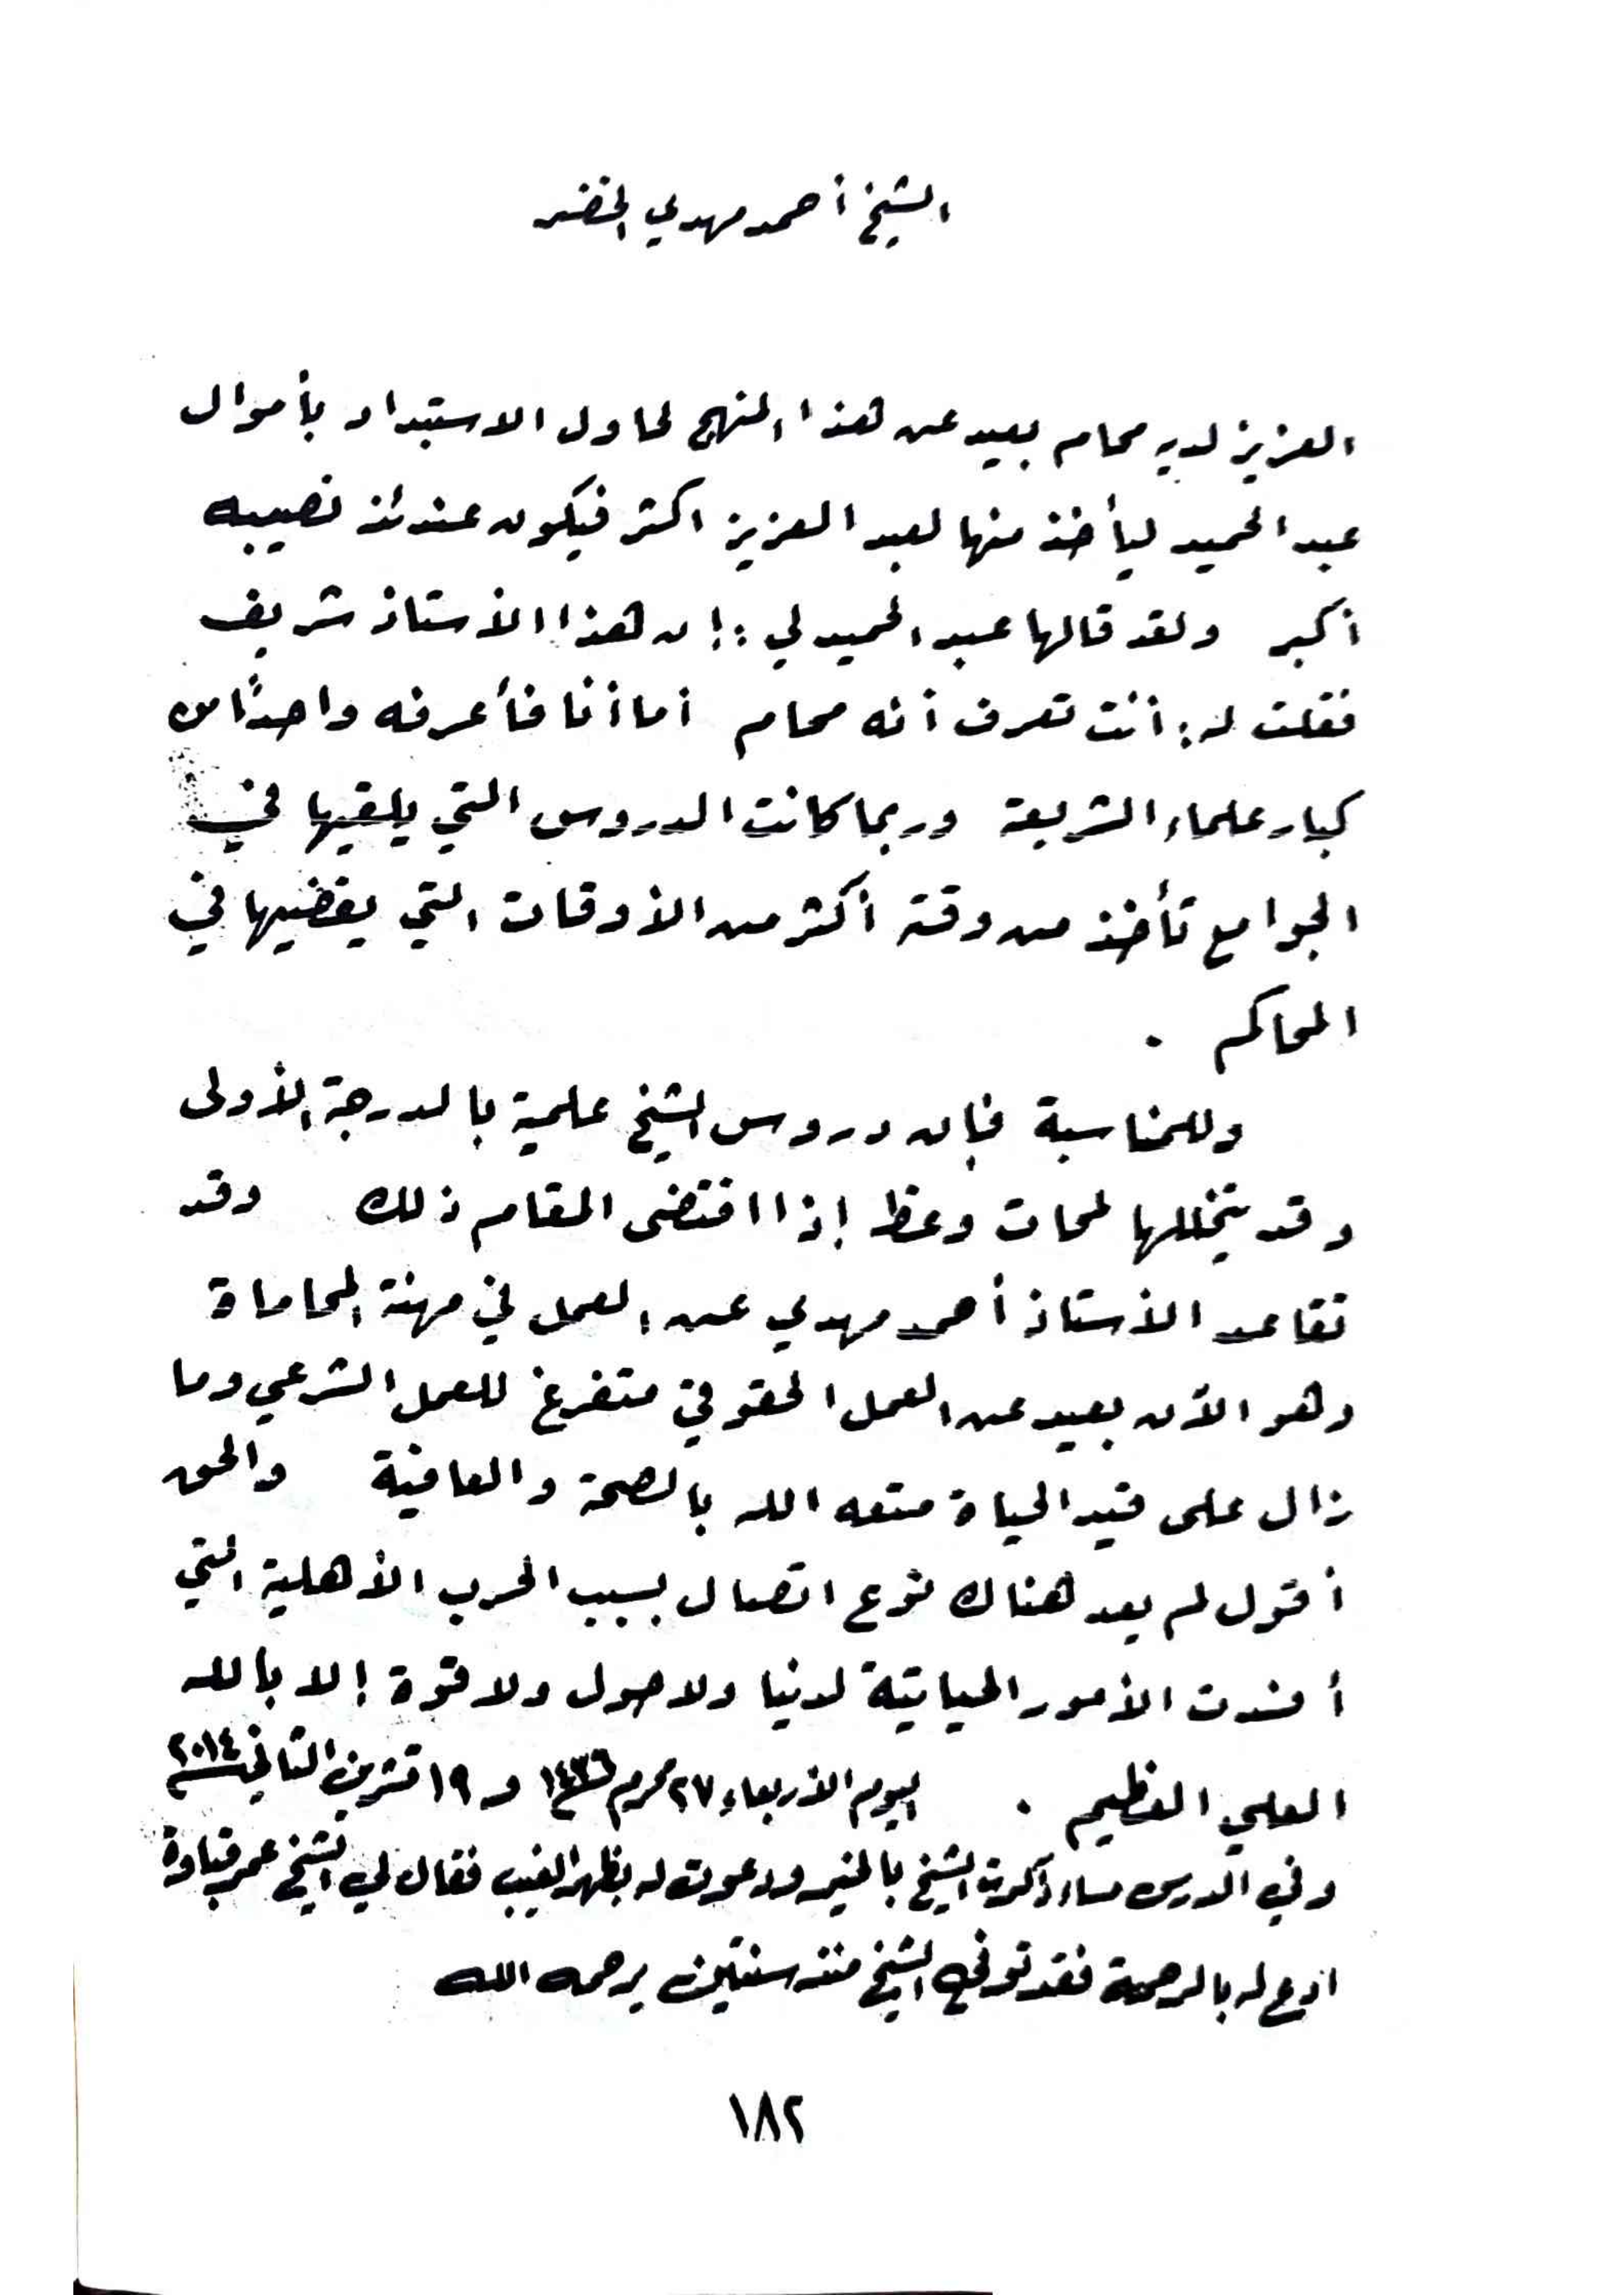 الشيخ أحمد مهدي الخضر
العزيز لديه محام بعيد عن هذا المنهج لحاول الاستبداد بأموال
عبد الحميد ليأخذ منها لعبد العزيز اكثر فيكون عندئذ نصيبه
أكبر ولقد قالها عبد الحميد لي : إن هذا الأستاذ شريف
فقلت له : أنت تعرف أنه محام أما أنا فأعرفه واحداً من
كبار علماء الشريعة وربما كانت الدروس التي يلقيها في
الجوامع تأخذ من وقته أكثر من الأوقات التي يقضيها في
المحاكم .
وللمناسبة فإن دروس الشيخ علمية بالدرجة الأولى
وقد يتخللها لمحات وعظ إذا اقتضى المقام ذلك وقد
تقاعد الأستاذ أحمد مهدي عن العمل في مهنة المحاماة
وهو الآن بعيد عن العمل الحقوقي متفرغ للعمل الشرعي وما
زال على قيد الحياة متعه الله بالصحة والعافية والحق
أقول لم يعد هناك نوع اتصال بسبب الحرب الأهلية التي
أفسدت الأمور الحياتية لدنيا ولا حول ولا قوة إلا بالله
العلي العظيم . اليوم الأربعاء ٢٧ محرم ١٤٣٦ و ١٩ تشرين الثاني ٢٠١٤
وفي الدرس مساء ذكرت الشيخ بالخير ودعوت له بظهر الغيب فقال لي الشيخ عمر قباوة
ادع له بالرحمة فقد توفي الشيخ منذ سنتين يرحمه الله
١٨٢